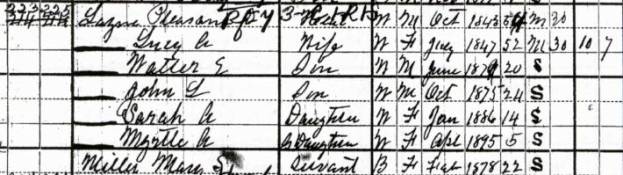 Pleasant Head W M Oct 1845 54 M 30
Lucy A Wife W F 1847 52 M 30 10 7
Walter E Son W M June 1879 20 S
John L Son W M Oct 1875 24 S
Sarah A Daughter W F Jan 1886 14 S
Myrtle A G Daughter W F Apl 1895 5 S
Miller Mary Servant B F Feb 1878 22 S